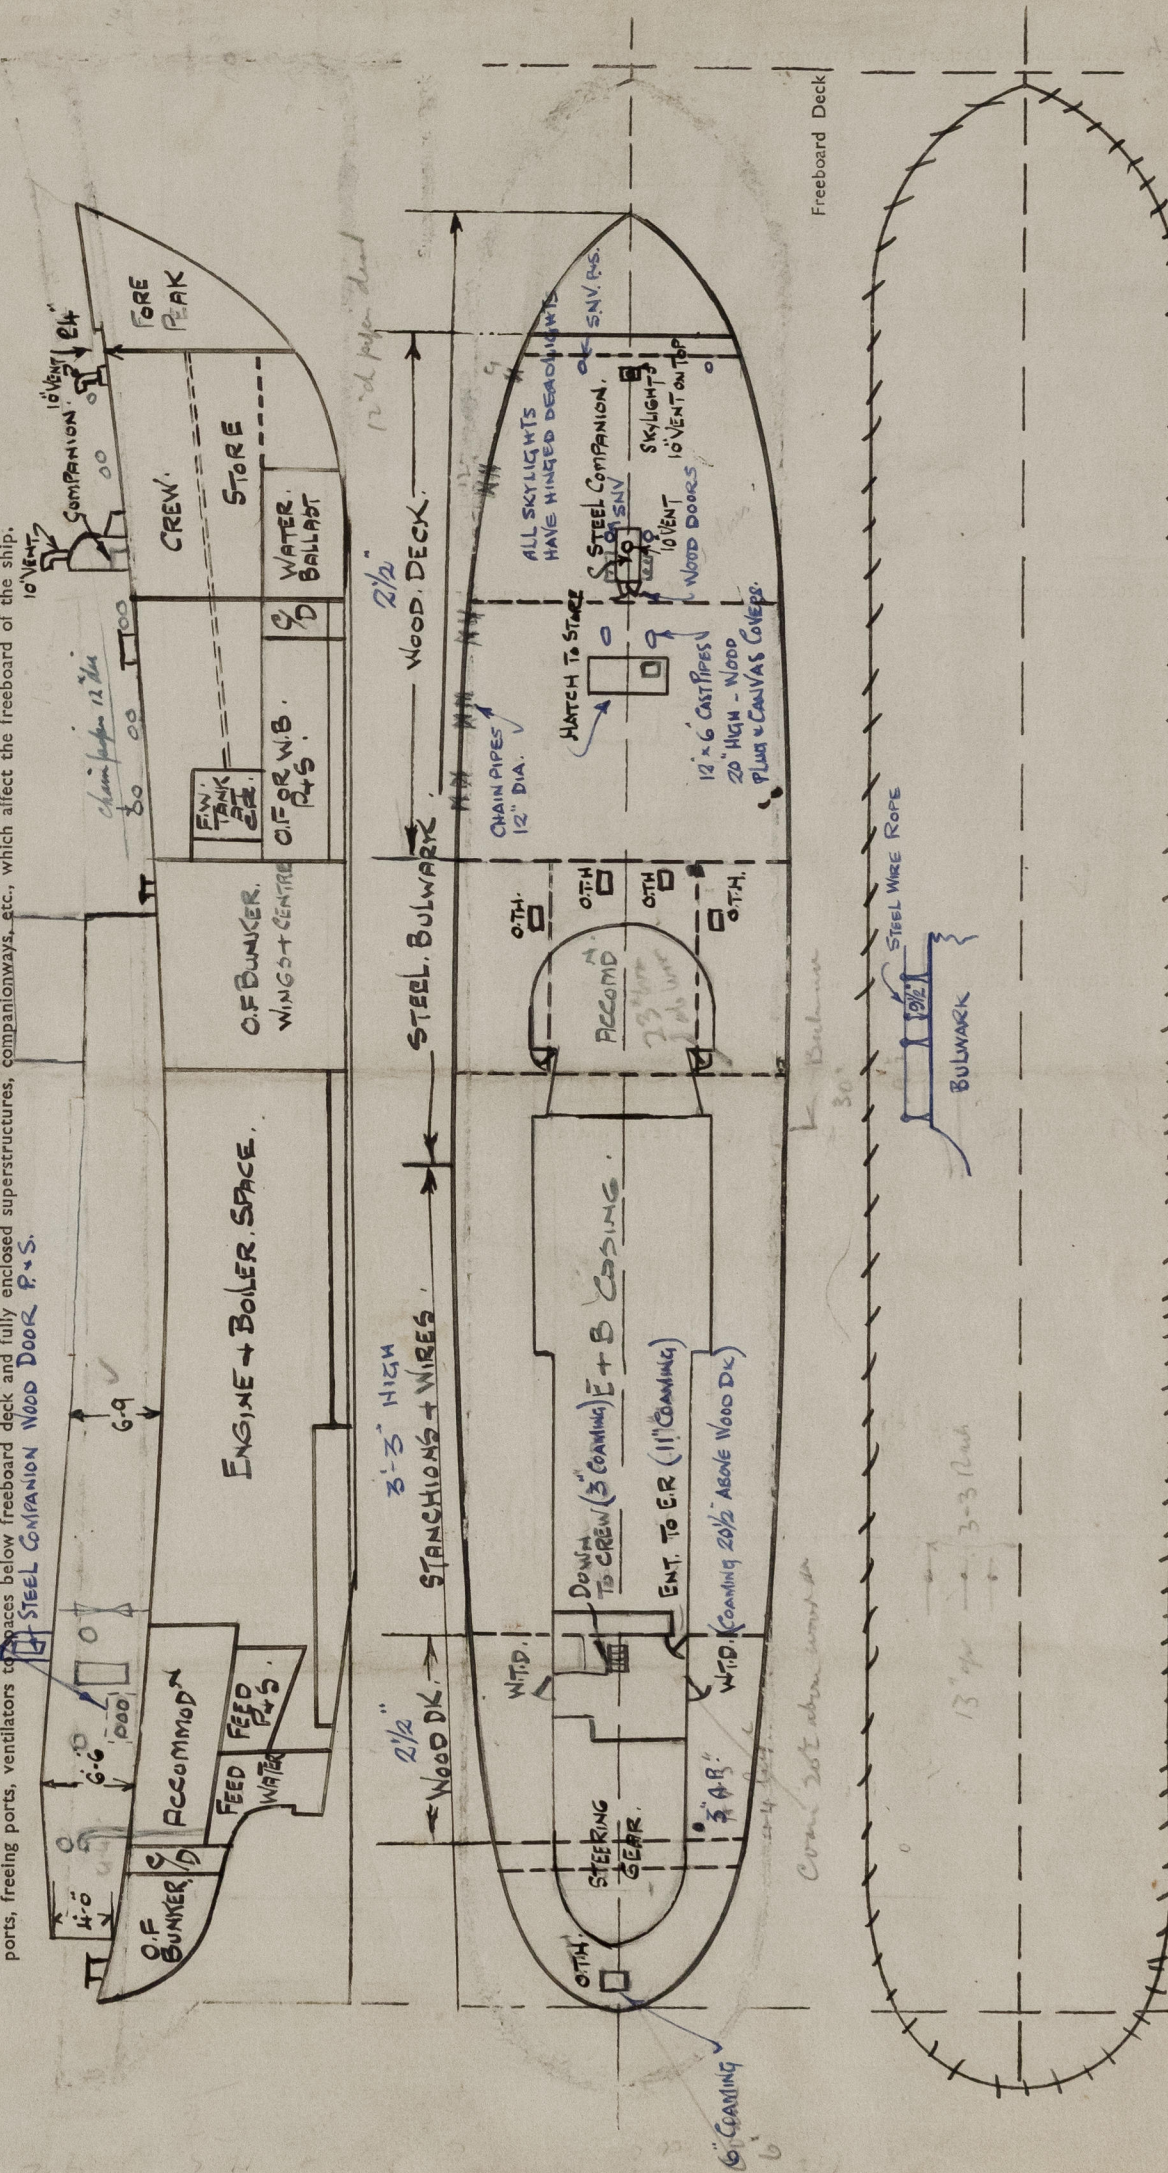 ports, freeing ports, ventilators to spaces below freeboard deck and fully enclosed superstructures, companionways, etc., which affect the freeboard of the ship.
STEEL COMPANION WOOD DOOR P. & S.
10" VENT
COMPANION.
10" VENT
24"
FORE
PEAK
CREW.
STORE
WATER.
BALLAST
C/D
chain pipes 12" dia
F.W.
TANK
AT
O.F OR W.B.
P+S.
O.F BUNKER.
WINGS + CENTRE
ENGINE + BOILER. SPACE.
6-9
6-6
4-0
ACCOMMODN
FEED
P+S
FEED
WATER
C/D
O.F
BUNKER
2½"
WOOD. DECK.
STEEL. BULWARK.
3'-3" HIGH
STANCHIONS + WIRES.
2½"
WOOD DK.
ALL SKYLIGHTS
HAVE HINGED DEADLIGHTS
SNV. P&S.
STEEL COMPANION.
SNV
SKYLIGHT
10" VENT ON TOP
10" VENT
WOOD DOORS
HATCH TO STORE
CHAIN PIPES
12" DIA.
12" x 6" CAST PIPES
20" HIGH - WOOD
PLUG & CANVAS COVERS.
O.T.H.
O.T.H
O.T.H
O.T.H.
ACCOMDN
E + B COSING.
DOWN
TO CREW (3" COAMING)
ENT. TO E.R (11" COAMING)
W.T.D.
W.T.D. (COAMING 20½" ABOVE WOOD DK)
STEERING
GEAR.
3" A.P.
O.T.H.
6" COAMING
6"
Freeboard Deck
STEEL WIRE ROPE
9½"
BULWARK
30"
3-3
13"